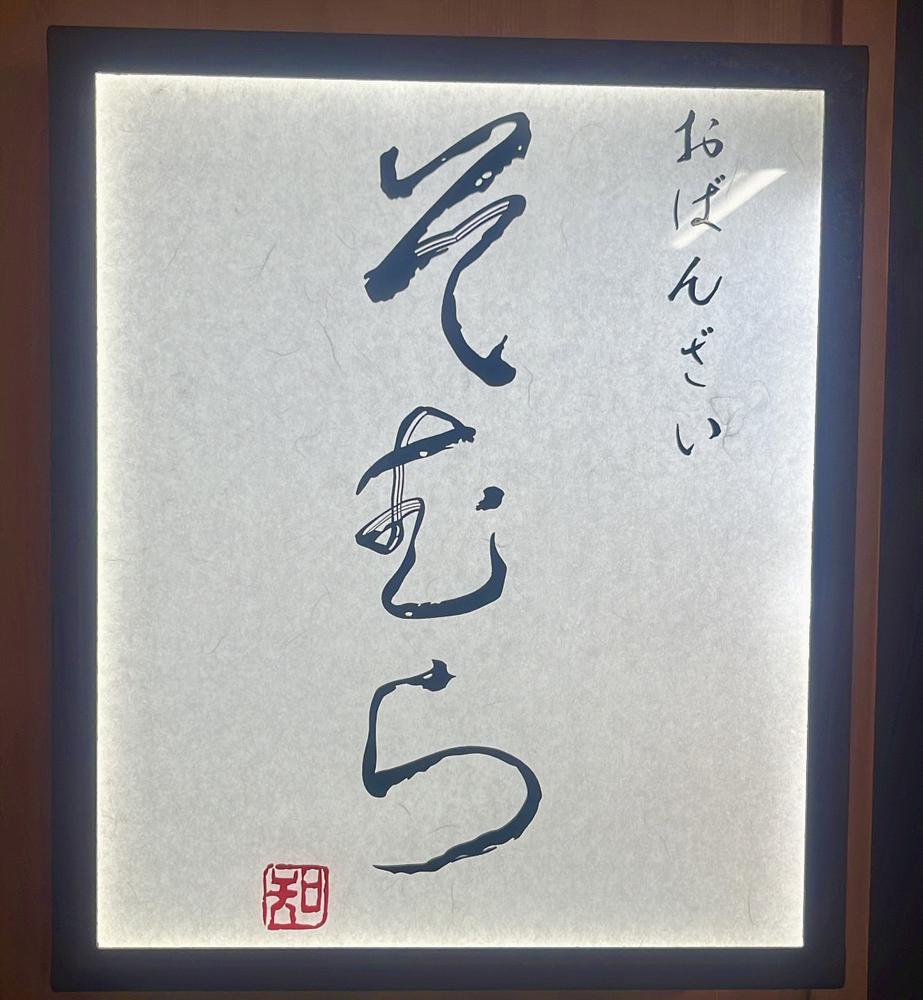 おばんざい
そむら
知